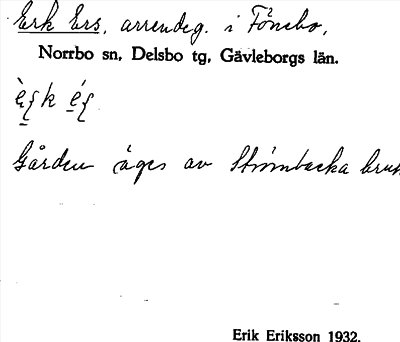 Erk Ers, arrendeg. i Fönebo,
Norrbo sn, Delsbo tg, Gävleborgs län.
Gården äges av Strömbacka bruk
Erik Eriksson 1932.